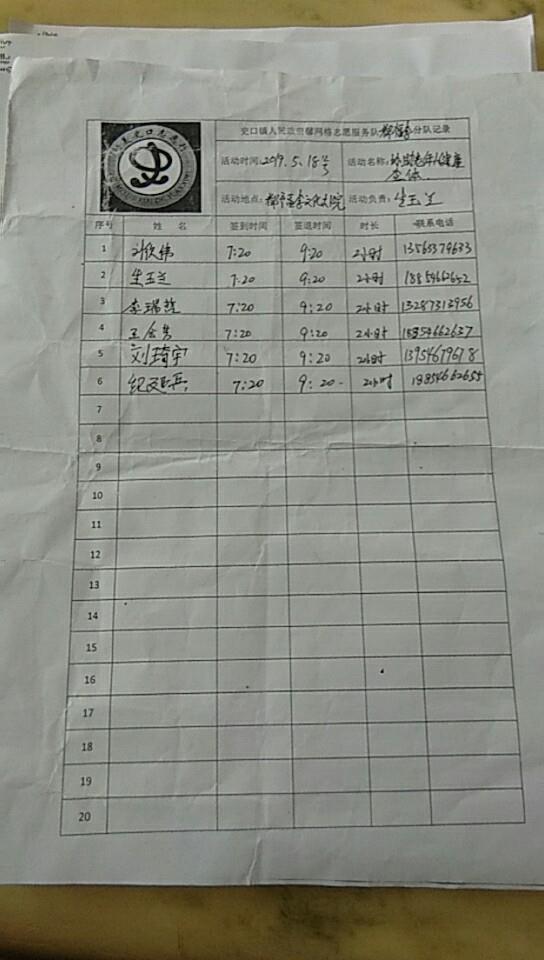 史口镇人民政温馨网格志愿服务队 分队记录
活动时间:2019.5.18号 活动名称: 老年人健康
查体
活动地点: 文化大院 活动负责:生玉兰
序号 姓 名 签到时间 签退时间 时长 联系电话
1 刘欣伟 7:20 9:20 2小时 13563379633
2 生玉兰 7:20 9:20 2小时 18854662652
3 李瑞 7:20 9:20 2小时 13287313956
4 王会芳 7:20 9:20 2小时 15854662637
5 刘琦宇 7:20 9:20 2小时 13954679678
6 纪廷兵 7:20 9:20 2小时 18854662655
7
8
9
10
11
12
13
14
15
16
17
18
19
20